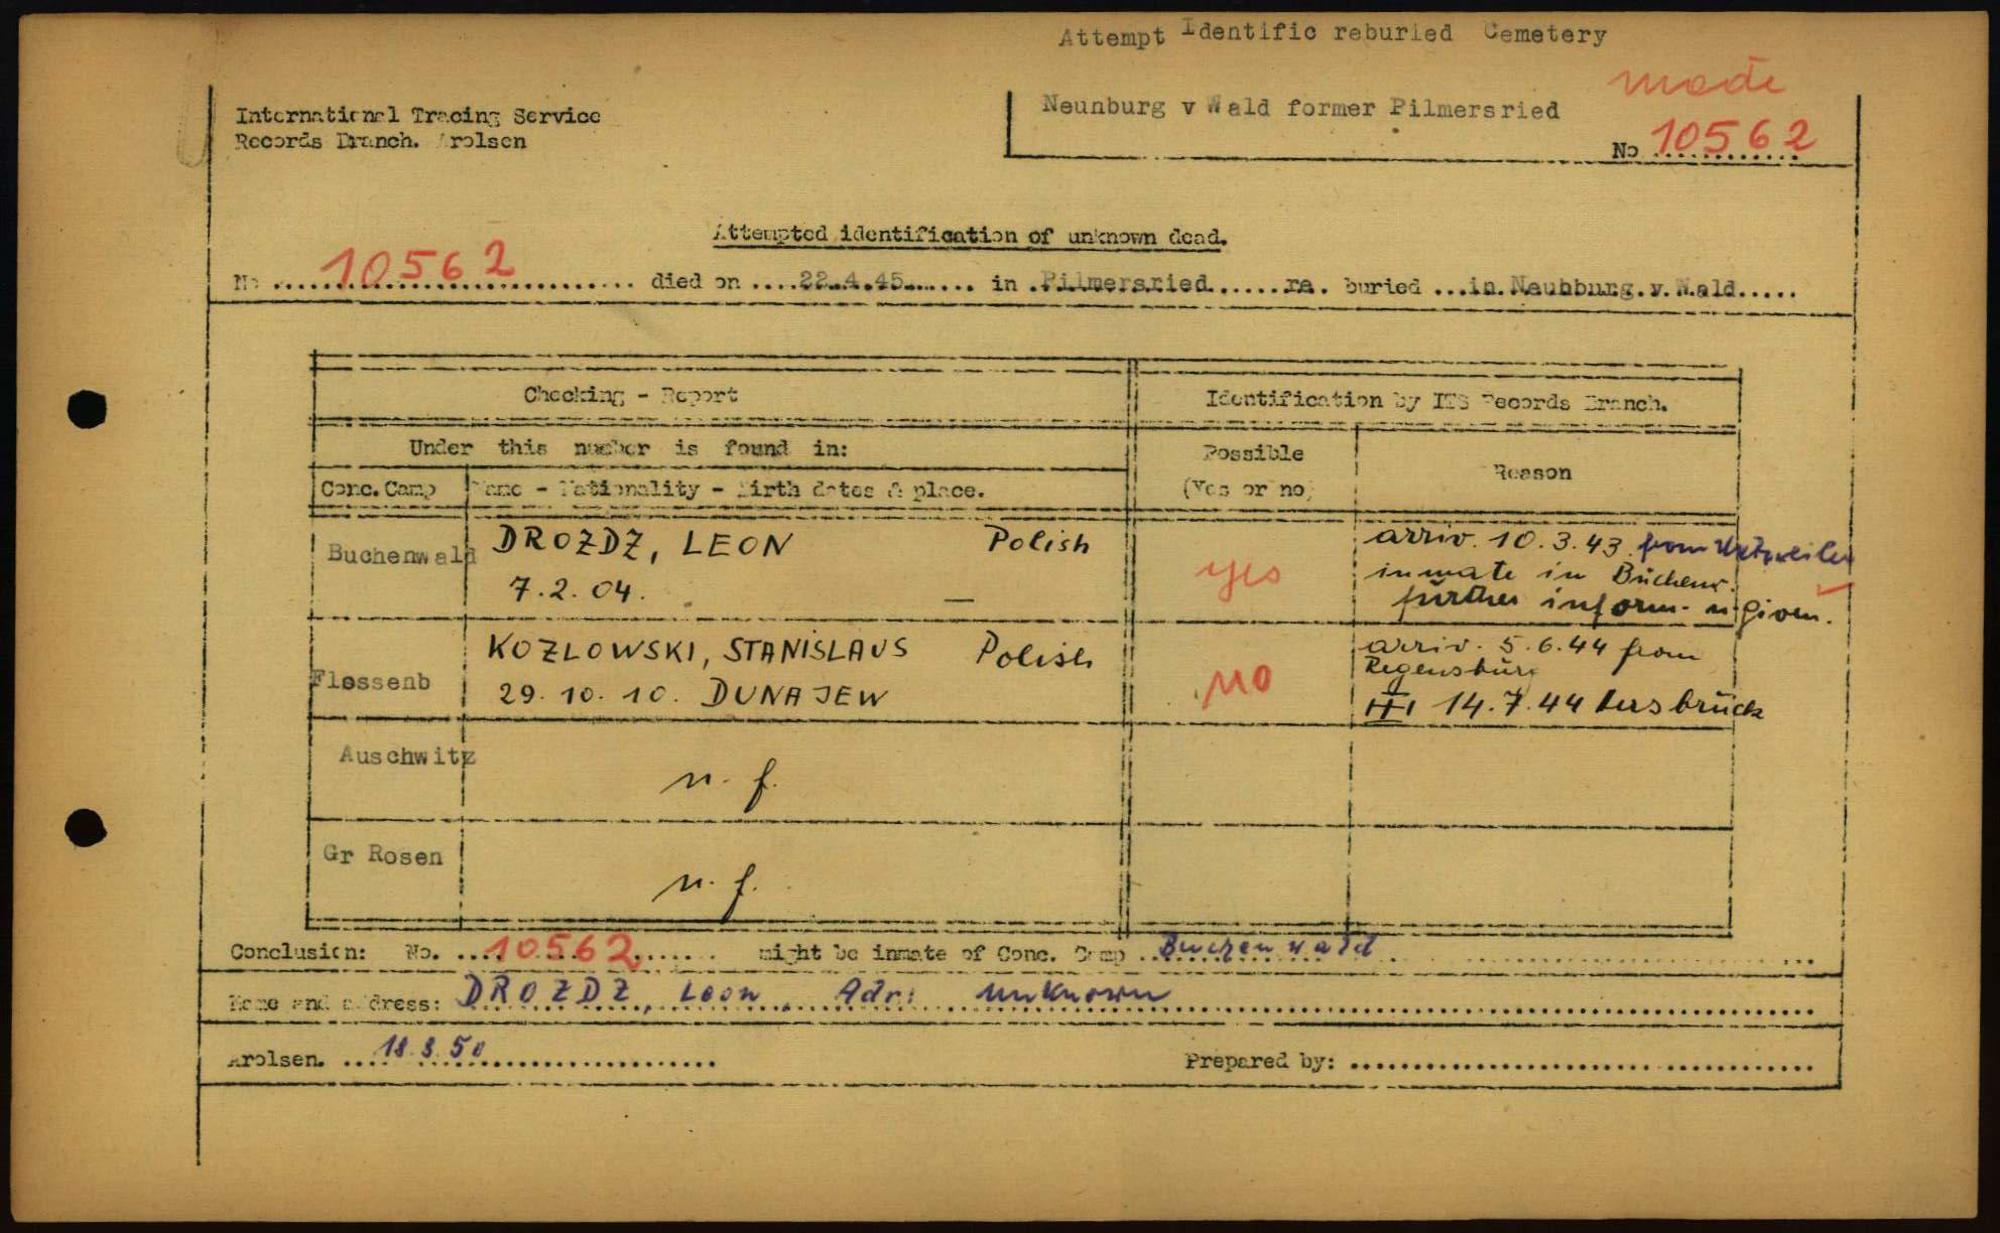 Attempt Identific reburied Cemetery
made
Neunburg v Wald former Pilmersried
No 10562
International Tracing Service
Records Branch. Arolsen
Attempted identification of unknown dead.
No 10562 died on 22.4.45 in Pilmersried re. buried in Neuhburg. v. Wald
Checking - Report
Identification by ITS Records Branch.
Under this number is found in:
Possible
(Yes or no)
Reason
Conc. Camp
Name - Nationality - Birth dates & place.
Buchenwald
DROZDZ, LEON Polish
7.2.04. —
yes
arriv. 10.3.43 from
inmate in Buchenw.
further inform. n. given.
Flossenb
KOZLOWSKI, STANISLAUS Polish
29.10.10. DUNAJEW
no
arriv. 5.6.44 from
Regensburg
14.7.44
Auschwitz
n. f.
Gr Rosen
n. f.
Conclusion: No. 10562 might be inmate of Conc. Camp Buchenwald
Name and address: DROZDZ, Leon, Adr: unknown
Arolsen. 18.8.50
Prepared by: